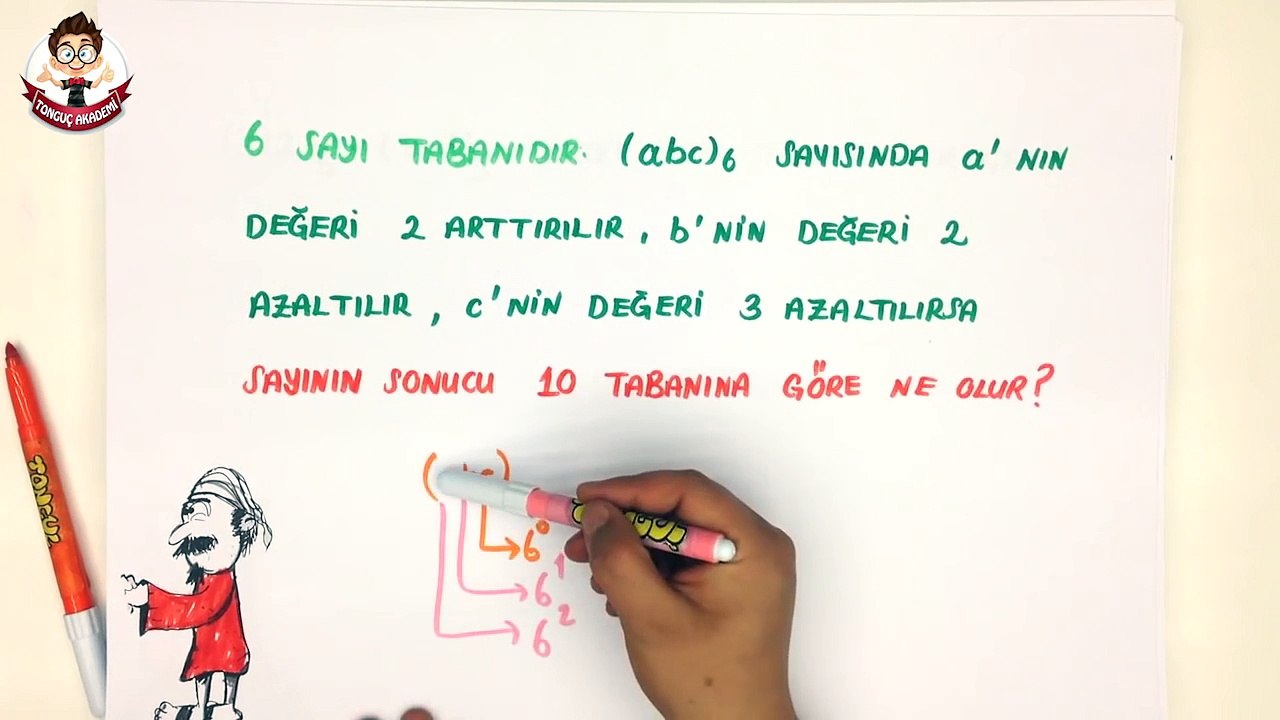 TONGUÇ AKADEMİ
6 SAYI TABANIDIR. (abc)6 SAYISINDA a' NIN
DEĞERİ 2 ARTTIRILIR, b'NİN DEĞERİ 2
AZALTILIR, c'NİN DEĞERİ 3 AZALTILIRSA
SAYININ SONUCU 10 TABANINA GÖRE NE OLUR?
( )
6⁰
6¹
6²